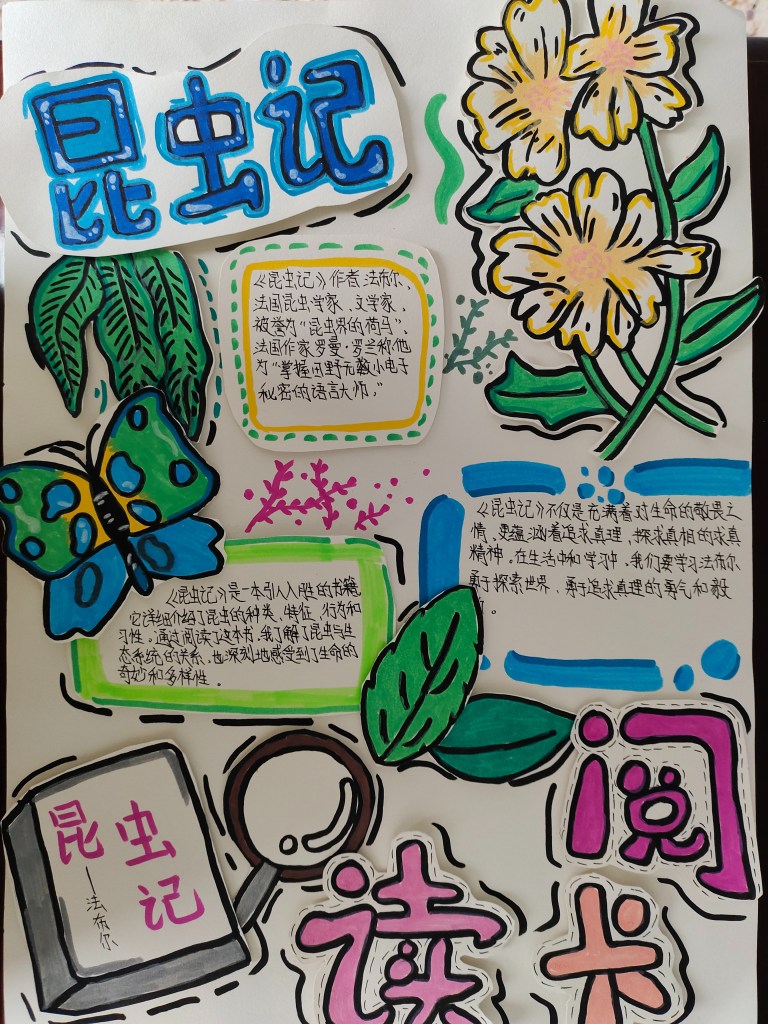 昆虫记
《昆虫记》作者法布尔、
法国昆虫学家、文学家、
被誉为“昆虫界的荷马”、
法国作家罗曼·罗兰称他
为“掌握田野无数小电子
秘密的语言大师。”
《昆虫记》不仅是充满着对生命的敬畏之
情、更蕴涵着追求真理、探求真相的求真
精神。在生活中和学习中，我们要学习法布尔
勇于探索世界、勇于追求真理的勇气和毅
。
《昆虫记》是一本引人入胜的书籍
它详细介绍了昆虫的种类、特征、行为和
习性。通过阅读了这本书、我了解了昆虫与生
态系统的关系、也深刻地感受到了生命的
奇妙和多样性。
昆虫
记
—法布尔
阅
读
卡